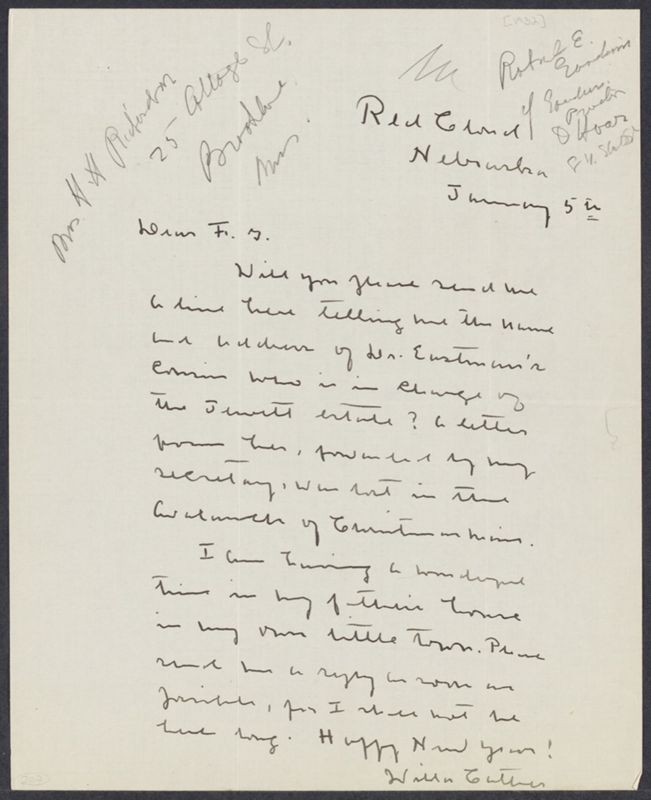 [1932]
Mrs. H H Richardson
25 Cottage St.
Brookline
Mass.
Robert E.
Goodwin
of Goodwin
Procter
& Hoar
Red Cloud
Nebraska
January 5th
Dear F. G.
Will you please send me
a line here telling me the name
and address of Dr. Eastman's
cousin who is in charge of
the Jewett estate? A letter
from her, forwarded by my
secretary, was lost in the
avalanche of Christmas mail.
I am having a wonderful
time in my father's house
in my own little town. Please
send me a reply as soon as
possible, for I shall not be
here long. Happy New Year!
Willa Cather